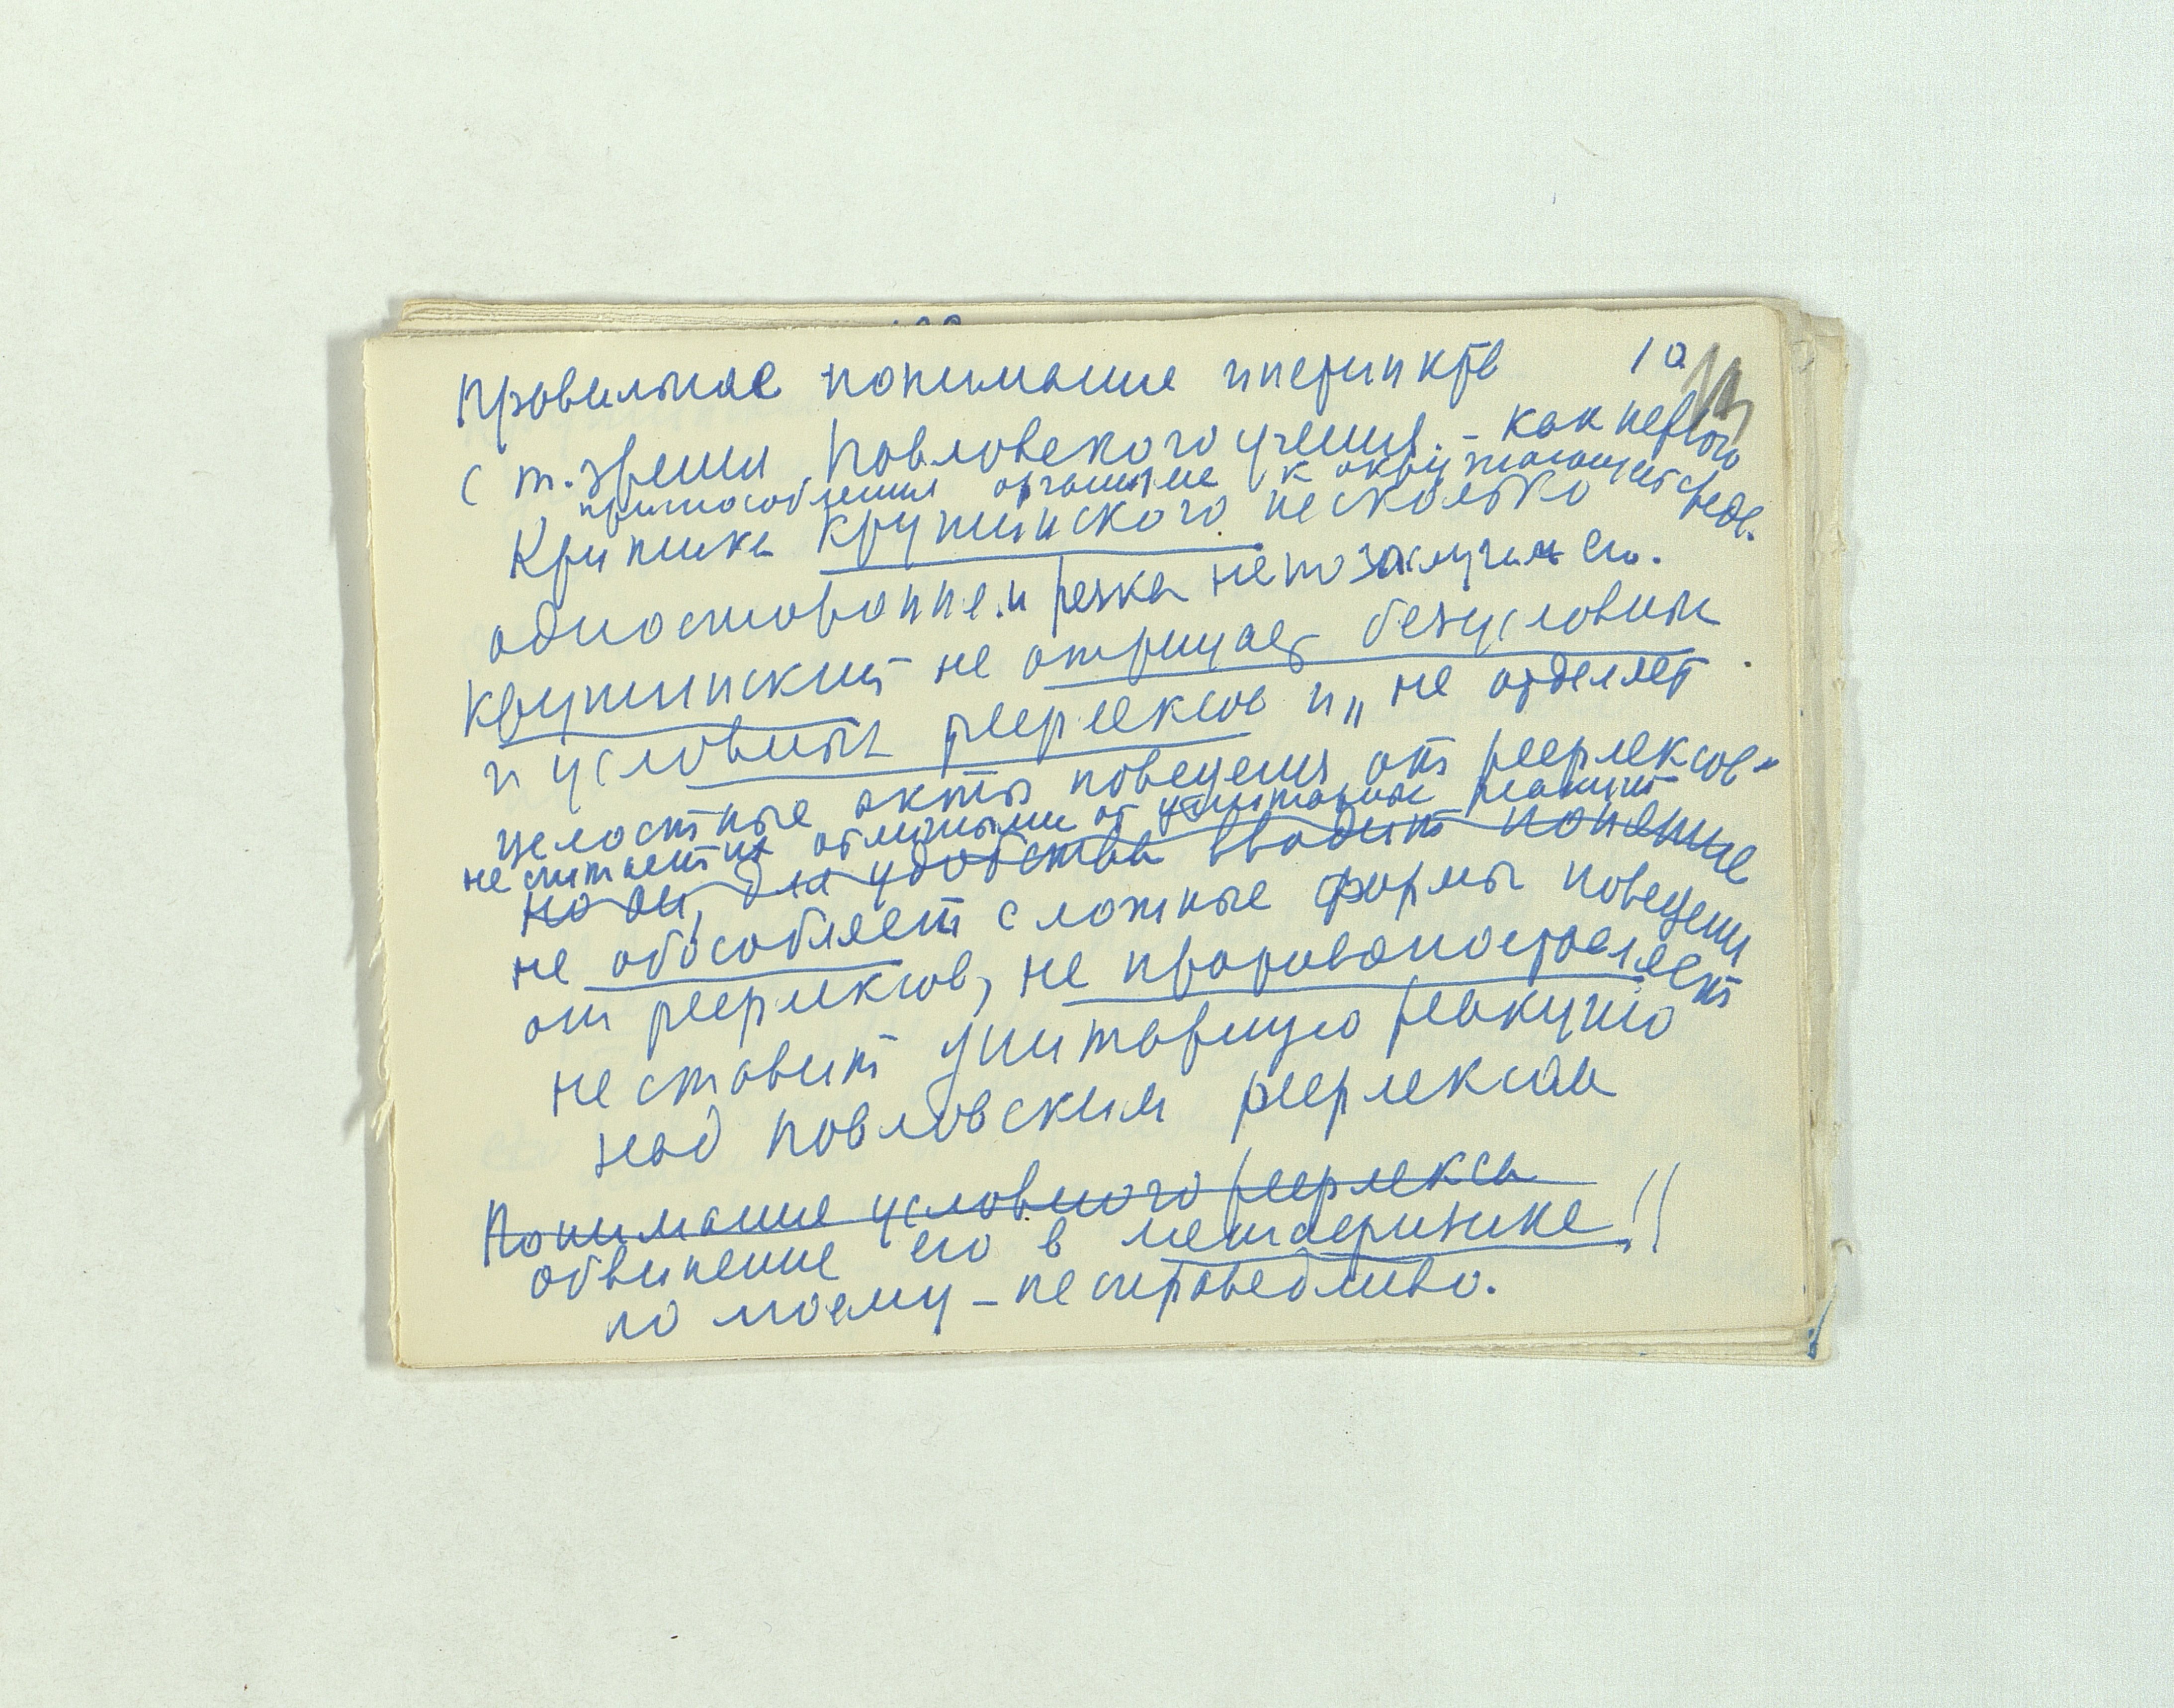 Правильное понимание инстинктв 10
с т. зрения Павловского учения. - как первого
приспособления организме к окружающей среде.
Критика Крушинского несколько
одностороння. и резка непозаслужил его.
Крушинский не отрицает безусловных
и условных рефлексов и „не отделяет
целостные акты поведения от рефлексов"
не считает их отличными от унитарных реакций
но он, для удобства вводит понятие
не обособляет сложные формы поведения
от рефлексов, не противопоставляет
не ставит унитарную реакцию
над павловским рефлексом
Понимание условного рефлекса
обвинение его в метафизике!!
по моему - несправедливо.